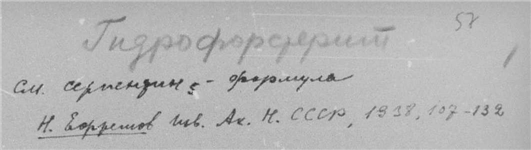 58
Гидрофорстерит
См. серпентин - формула
Н. Ефремов Изв. Ак. Н. СССР, 1938, 107-132